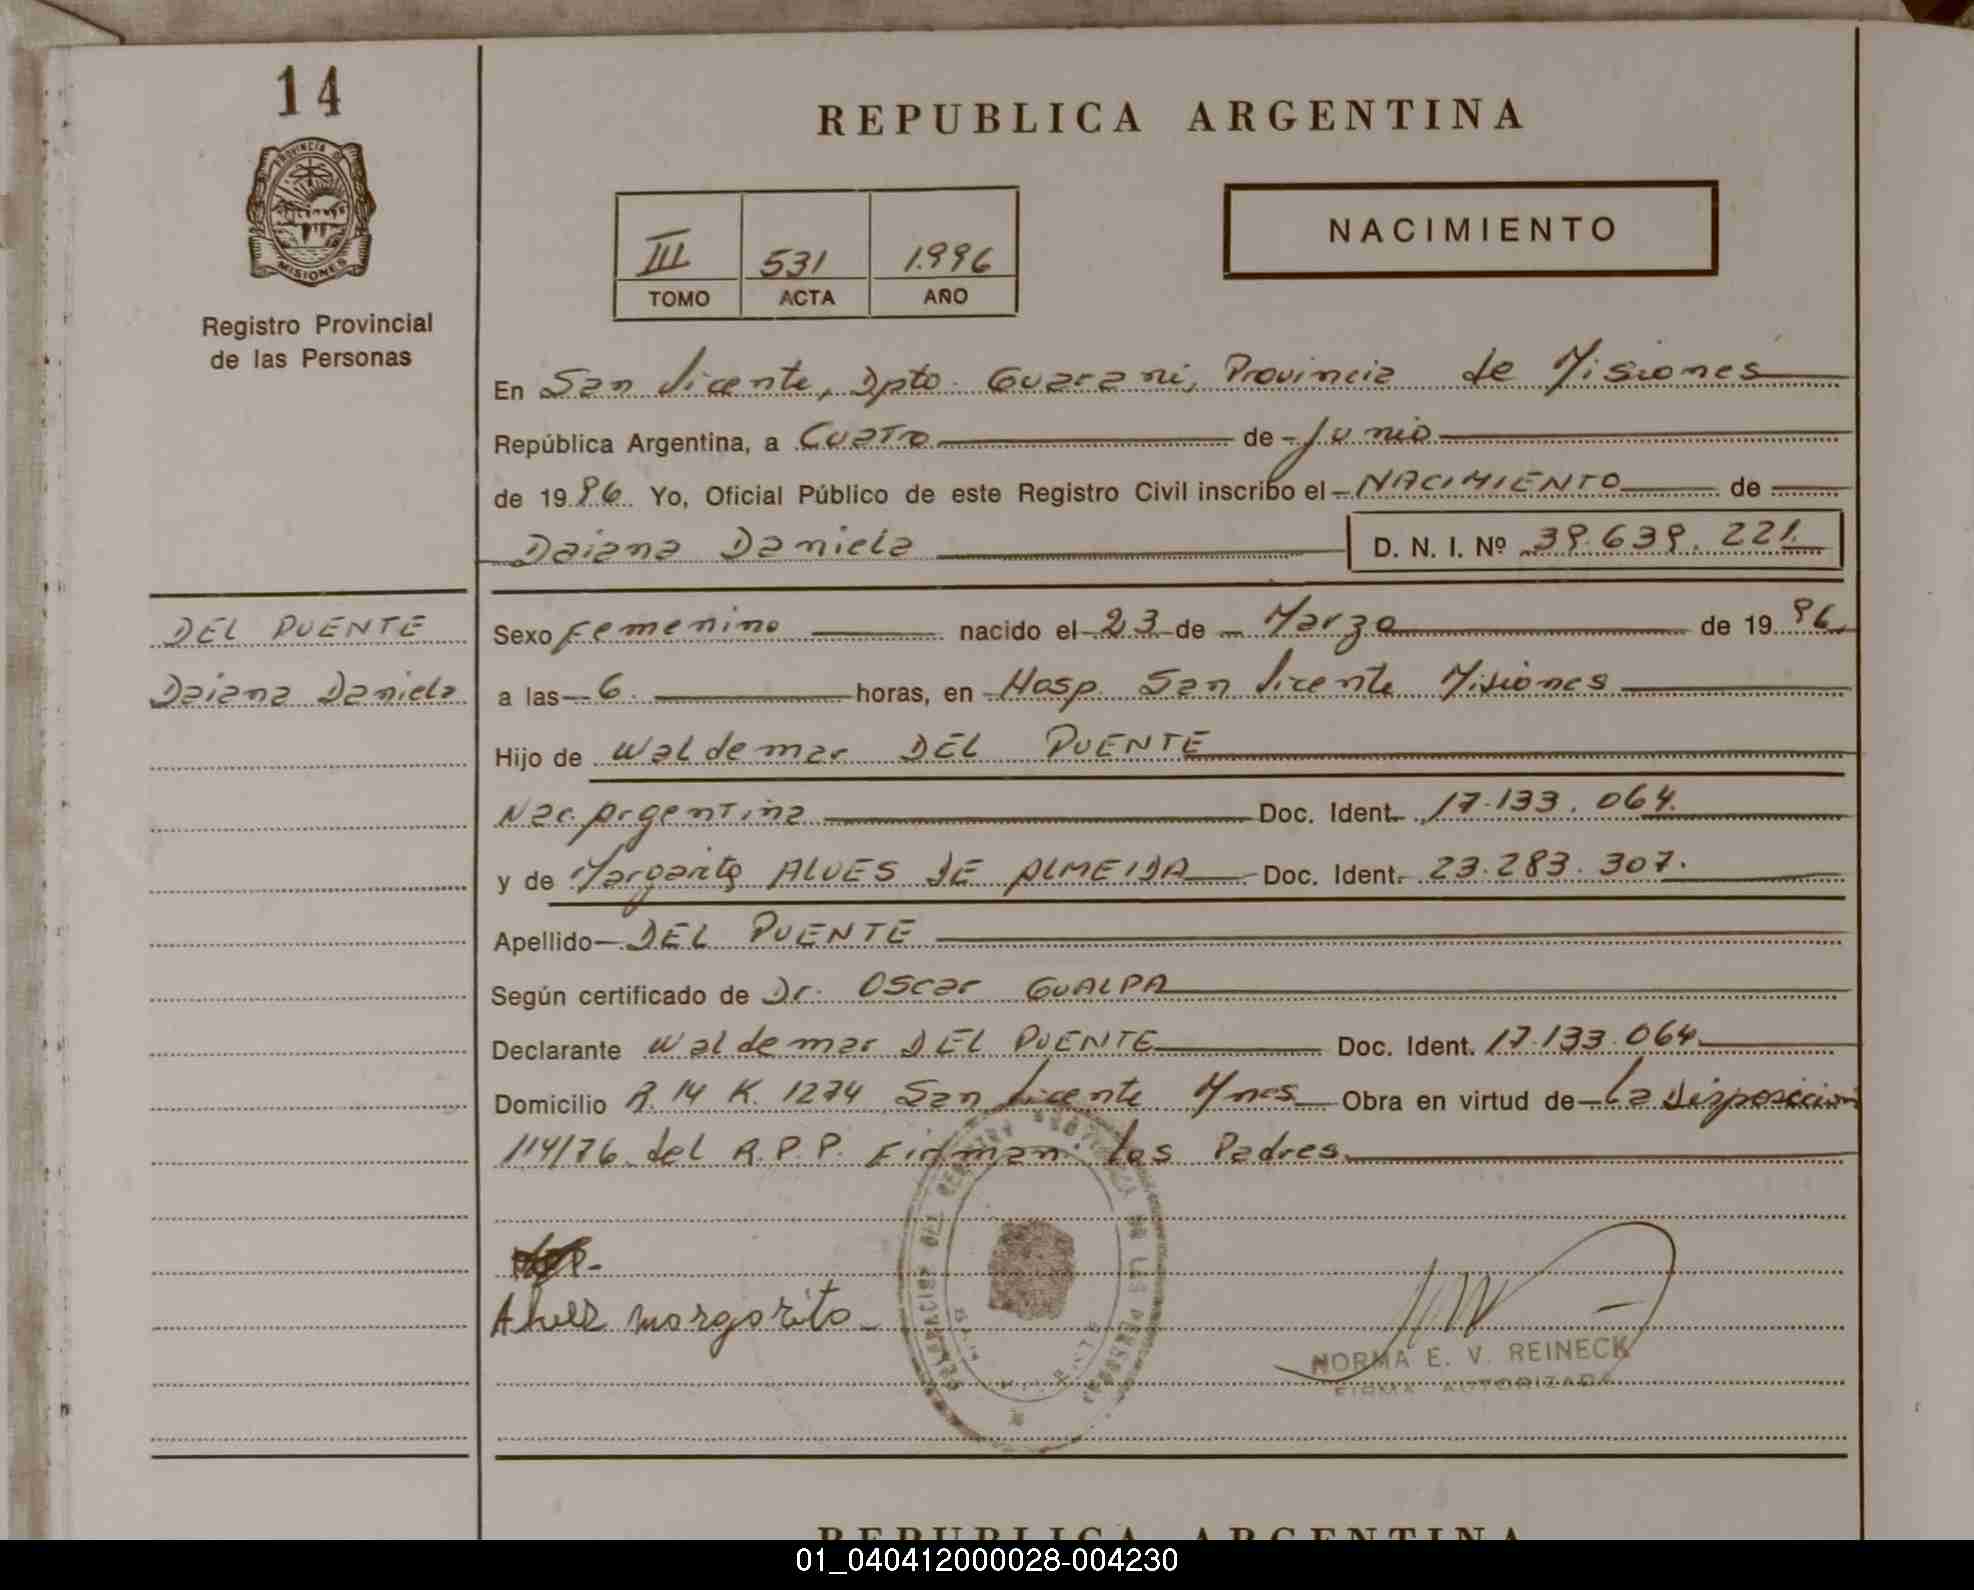 14
PROVINCIA DE
MISIONES
Registro Provincial
de las Personas
REPUBLICA ARGENTINA
III 531 1.996
TOMO ACTA AÑO
NACIMIENTO
En San Vicente, Dpto. Guarani, Provincia de Misiones
República Argentina, a Cuatro de Junio
de 1996 Yo, Oficial Público de este Registro Civil inscribo el NACIMIENTO de
Daiana Daniela D. N. I. Nº 39.639.221.
DEL PUENTE
Daiana Daniela
Sexo Femenino nacido el 23 de Marzo de 1996
a las 6. horas, en Hosp. San Vicente Misiones
Hijo de Waldemar DEL PUENTE
Nac. Argentina Doc. Ident. 17.133.064.
y de Margarita ALVES DE ALMEIDA Doc. Ident. 23.283.307.
Apellido DEL PUENTE
Según certificado de Dr. Oscar GUALPA
Declarante Waldemar DEL PUENTE Doc. Ident. 17.133.064
Domicilio R. 14 K. 1274 San Vicente Mnes Obra en virtud de La Disposicion
114/76 del R.P.P. Firman los Padres.
margarita
NORMA E. V. REINECK
FIRMA AUTORIZADA
REPUBLICA ARGENTINA
01_040412000028-004230